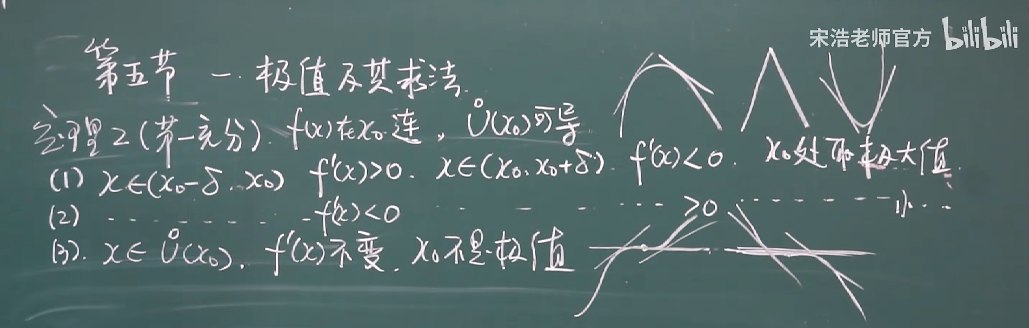 宋浩老师官方 bilibili
第五节 一. 极值及其求法.
定理2(第一充分). f(x)在x₀连, Ů(x₀)可导
(1) x∈(x₀-δ, x₀) f'(x)>0. x∈(x₀, x₀+δ). f'(x)<0. x₀处取极大值.
(2) - - - - - - - - f'(x)<0 - - - - - - - - >0 - - - - - - - - 小...
(3). x∈Ů(x₀). f'(x)不变. x₀不是极值